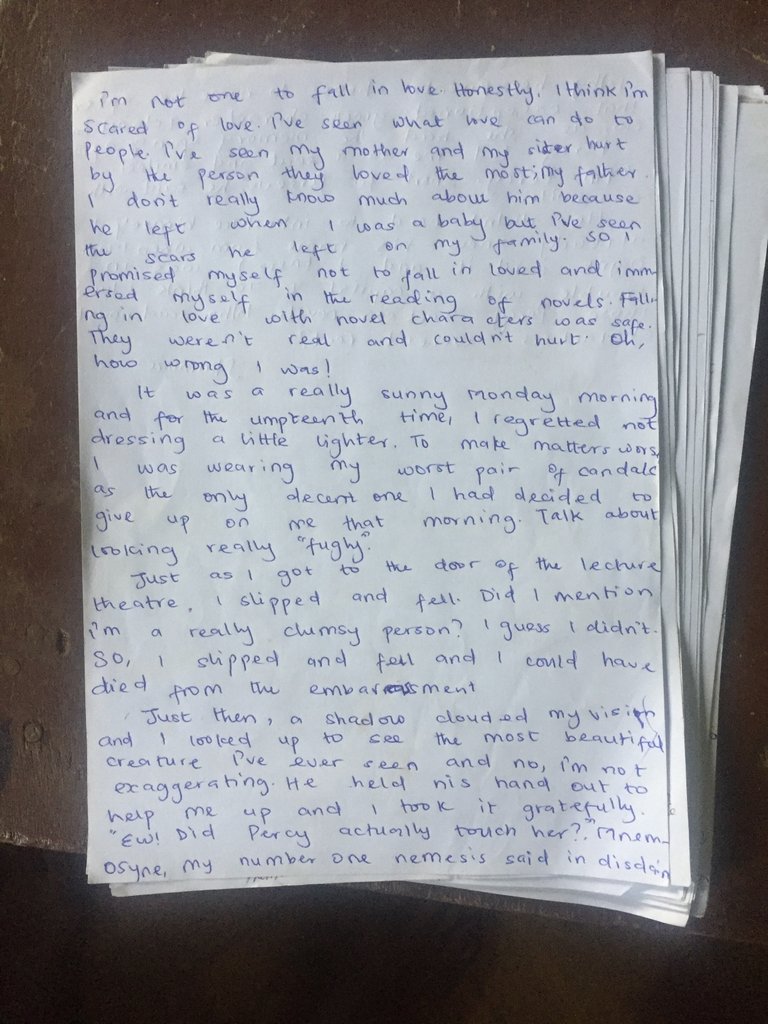 i'm not one to fall in love. Honestly, I think i'm
scared of love. I've seen what love can do to
people. I've seen my mother and my sister hurt
by the person they loved the most; my father.
I don't really know much about him because
he left when I was a baby but I've seen
the scars he left on my family. SO I
promised myself not to fall in loved and imm-
ersed myself in the reading of novels. Falli-
ng in love with novel characters was safe.
They weren't real and couldn't hurt. Oh,
how wrong I was!
It was a really sunny Monday morning
and for the umpteenth time, I regretted not
dressing a little lighter. To make matters wors
I was wearing my worst pair of candals
as the only decent one I had decided to
give up on me that morning. Talk about
looking really "fughy".
Just as I got to the door of the lecture
theatre, I slipped and fell. Did I mention
i'm a really clumsy person? I guess I didn't.
SO, I slipped and fell and I could have
died from the embarrassment
Just then, a shadow clouded my vision
and I looked up to see the most beautiful
creature I've ever seen and no, i'm not
exaggerating. He held his hand out to
help me up and I took it gratefully.
"Ew! Did Percy actually touch her?." Mnem-
osyne, my number one nemesis said in disdain